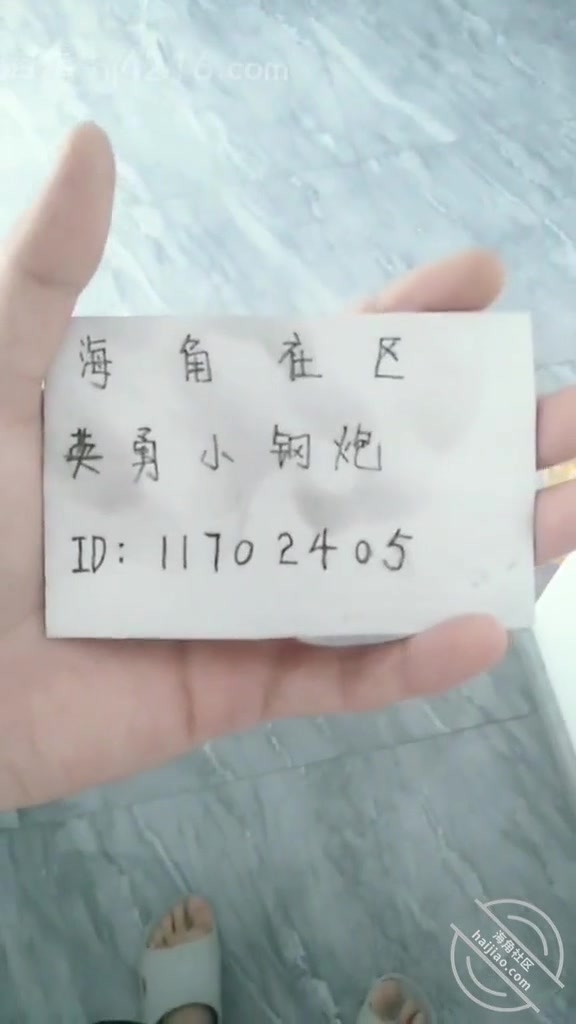 海角社区
英勇小钢炮
ID: 11702405
海角社区
haijiao.com